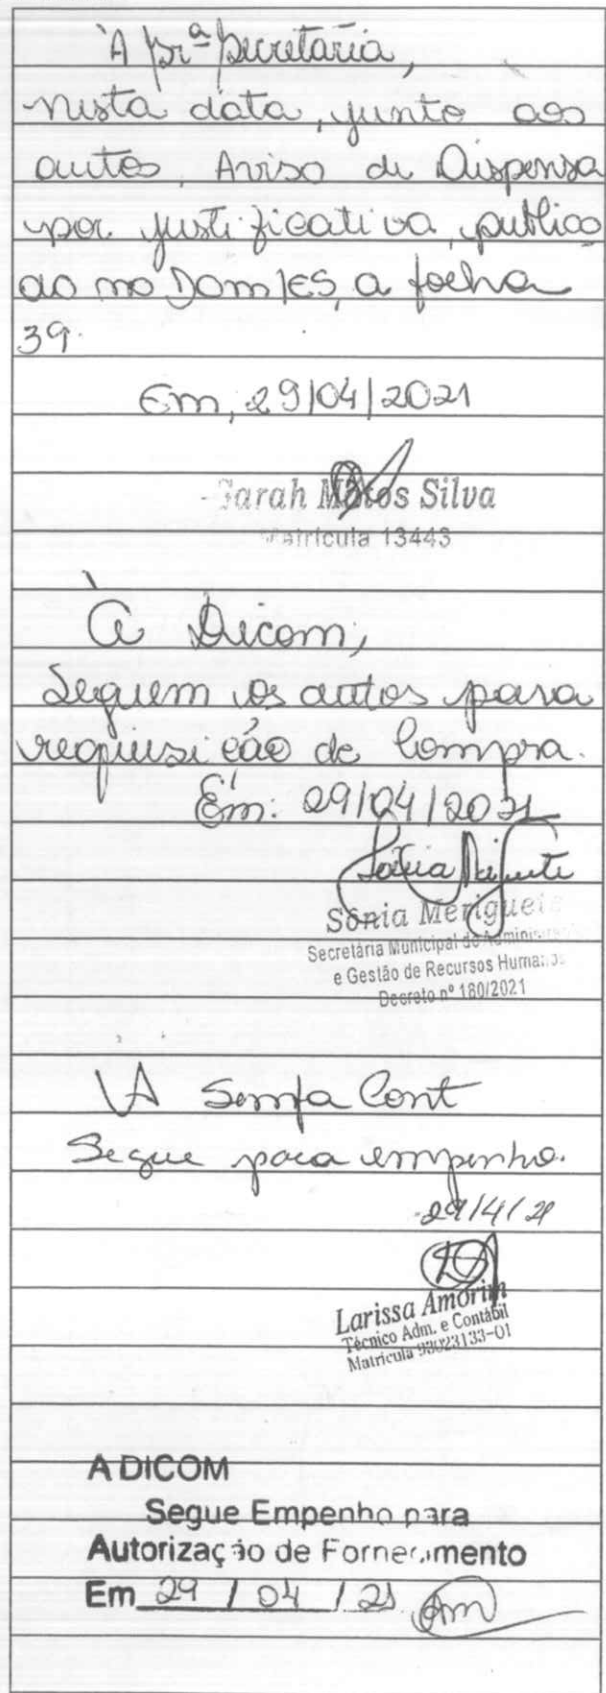 À Srª Secretária,
nesta data, junto aos
autos, Aviso de Dispensa
por justificativa, publica
do no DOM/ES, a folha
39.
Em, 29/04/2021
Sarah Matos Silva
Matrícula 13443
À Dicom,
Seguem os autos para
requisição de Compra.
Em: 29/04/2021
Sônia Merigueti
Secretária Municipal de Administração
e Gestão de Recursos Humanos
Decreto nº 180/2021
À Semfa Cont
Segue para empenho.
29/4/21
Larissa Amorim
Técnico Adm. e Contábil
Matrícula 93023133-01
A DICOM
Segue Empenho para
Autorização de Fornecimento
Em 29 / 04 / 21